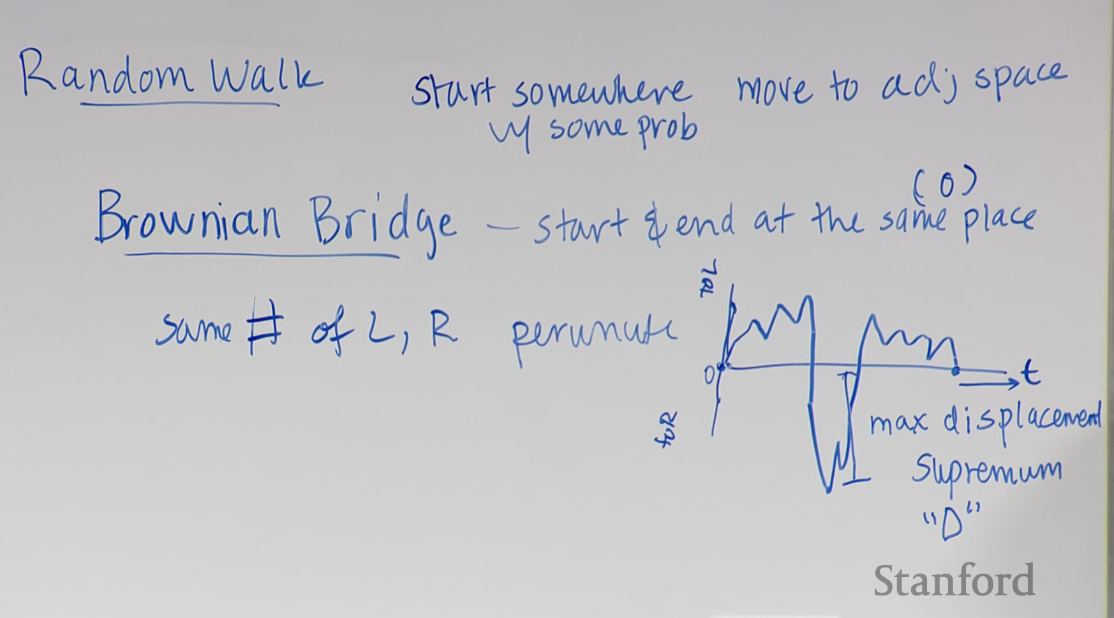 Random Walk start somewhere move to adj space
w/ some prob
(0)
Brownian Bridge – start & end at the same place
same # of L, R permute
0 t
max displacement
Supremum
"D"
Stanford